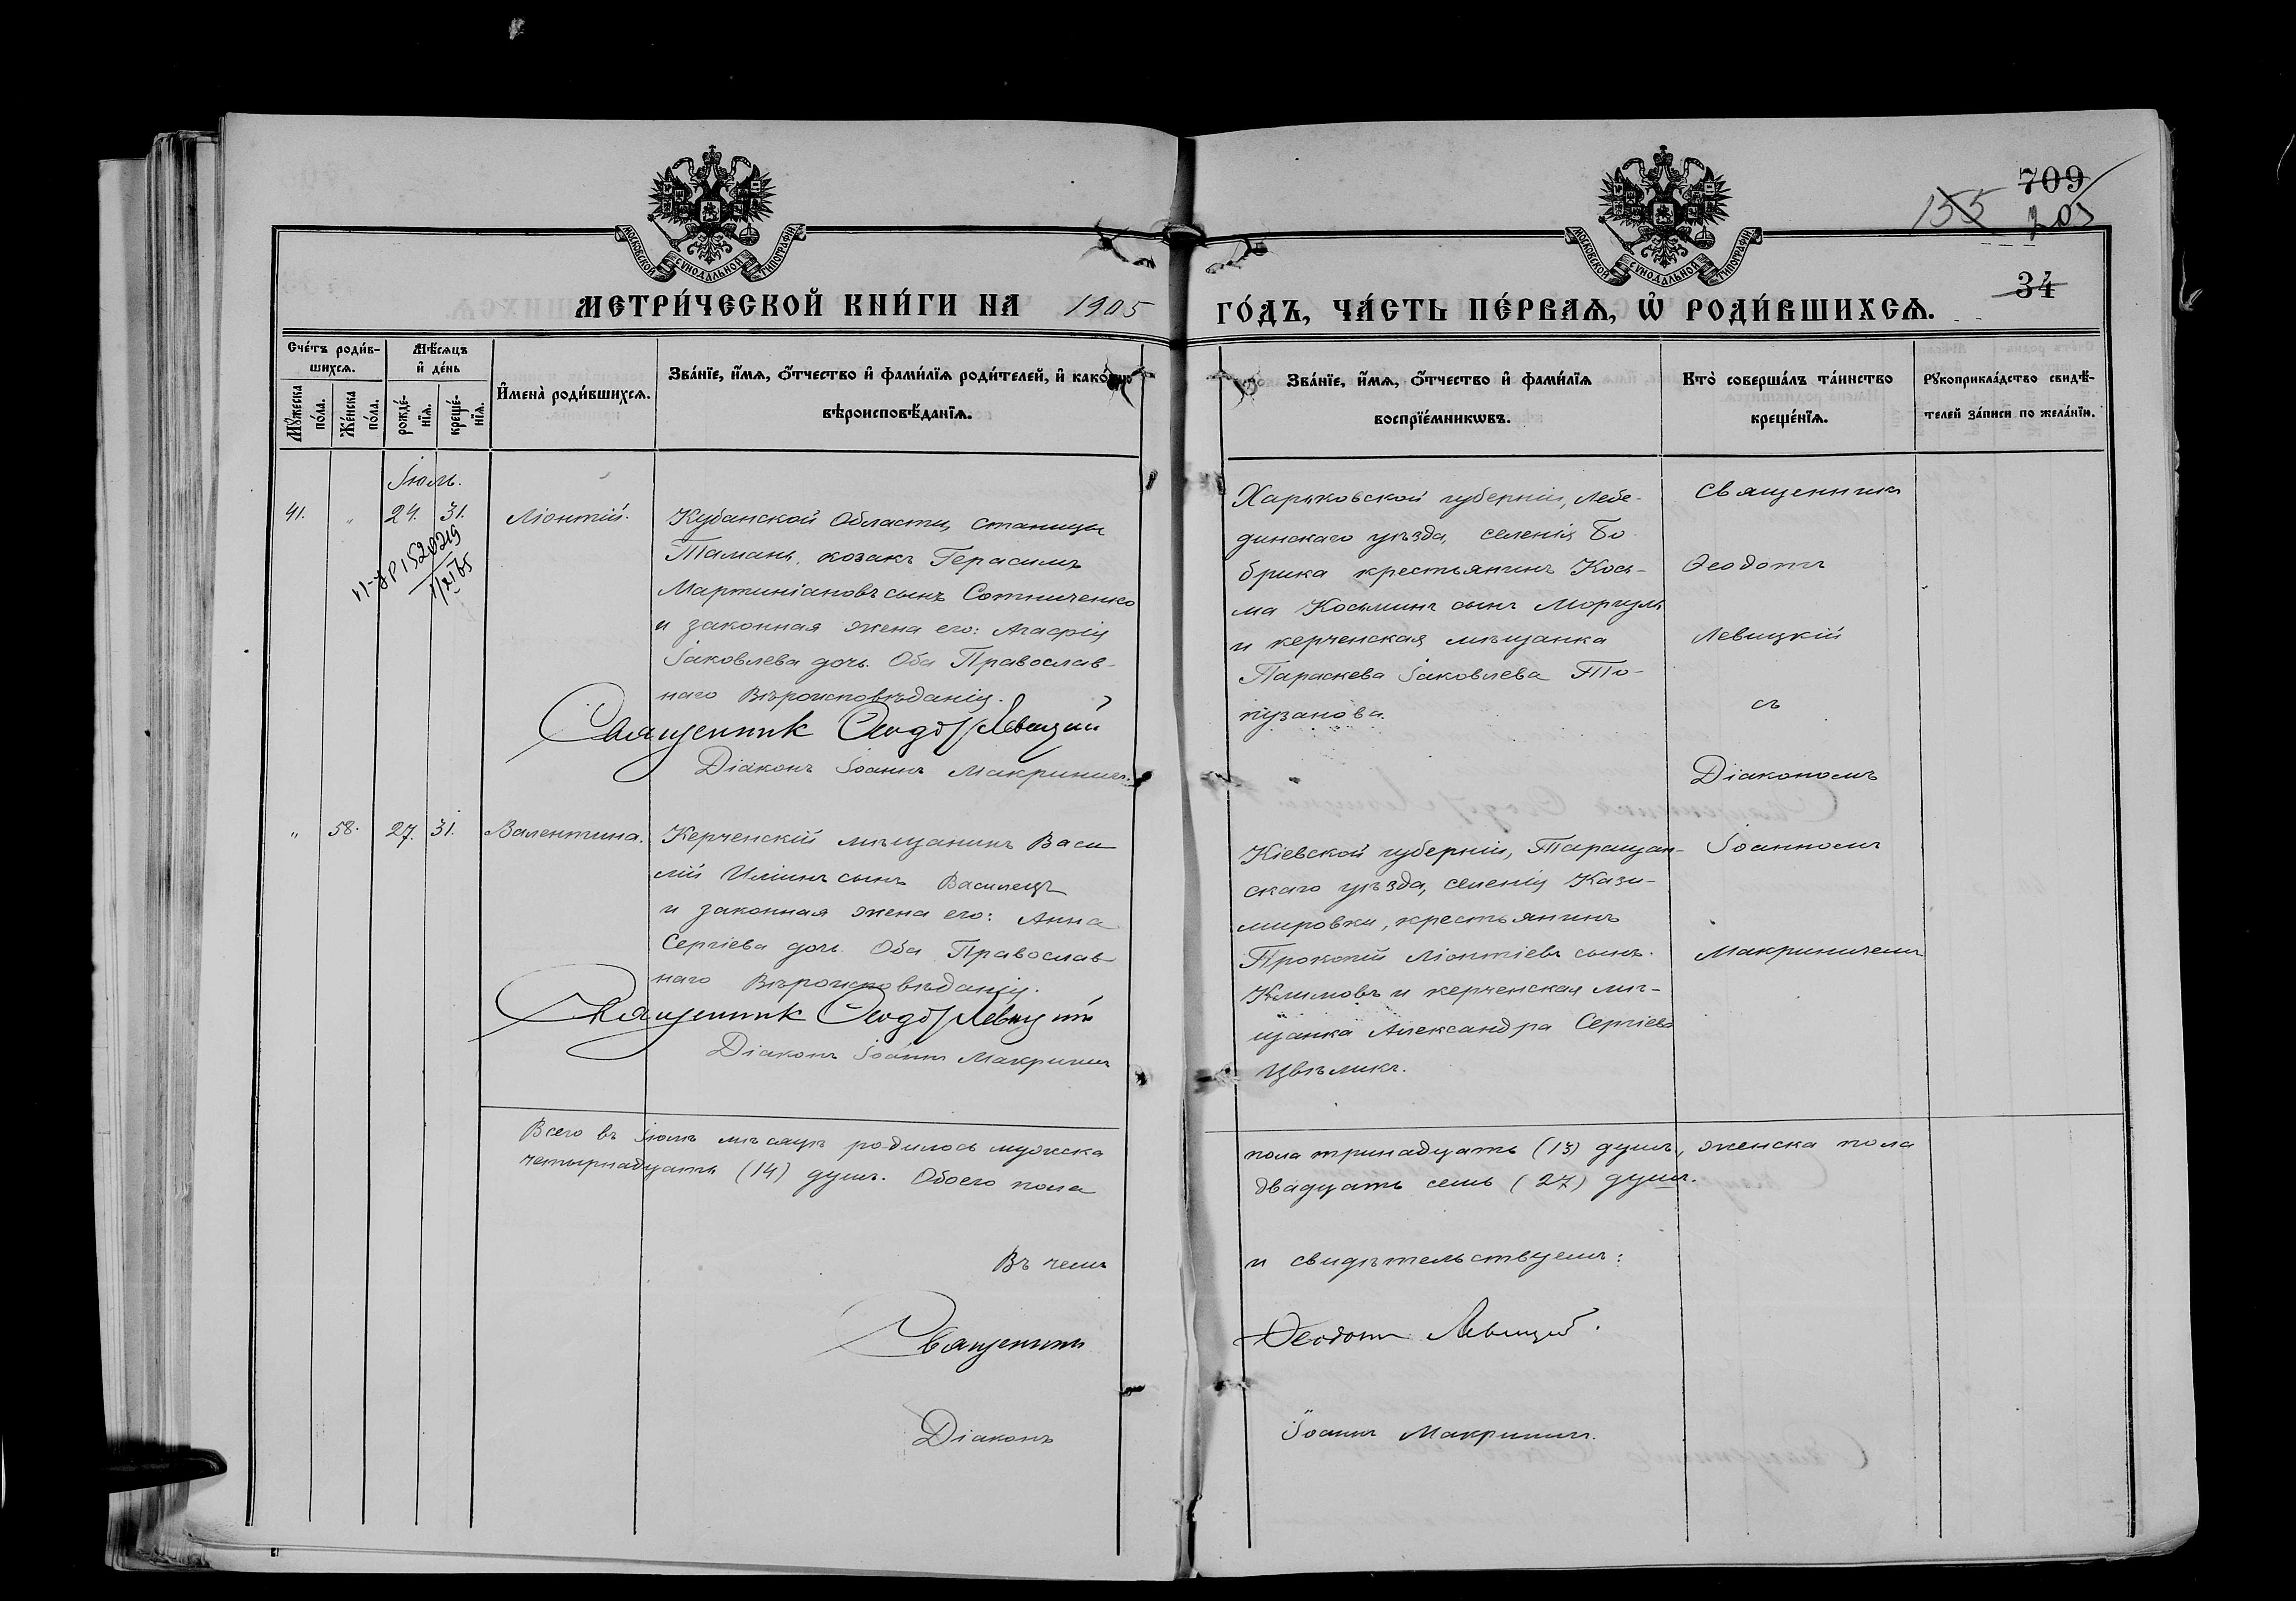 709
155 205
МОСКОВСКОЙ СѴНОДАЛЬНОЙ ТИПОГРАФІИ
МОСКОВСКОЙ СѴНОДАЛЬНОЙ ТИПОГРАФІИ
34
МЕТРИ́ЧЕСКОЙ КНИ́ГИ НА 1905 ГО́ДЪ, ЧА́СТЬ ПЕ́РВАѦ, Ѡ҆ РОДИ́ВШИХСѦ.
Сче́тъ роди́в-
шихсѧ.
Мѣ́сѧцъ
и҆ де́нь
Мꙋ́жеска
по́ла.
Же́нска
по́ла.
рожде́-
нїѧ.
креще́-
нїѧ.
И҆мена̀ роди́вшихсѧ.
Зва́нїе, и҆́мѧ, ѻ҆́тчество и҆ фами́лїѧ роди́телей, и҆ како́гѡ
вѣроисповѣ́данїѧ.
Зва́нїе, и҆́мѧ, ѻ҆́тчество и҆ фами́лїѧ
воспрїе́мникѡвъ.
Кто̀ соверша́лъ та́инство
креще́нїѧ.
Рꙋкоприкла́дство свидѣ́-
телей за́писи по жела́нїю.
Іюль.
41. " 24. 31. Ліонтій.
Кубанской Области, станицы
Тамань, козакъ Герасимъ
Мартиніановъ сынъ Сотниченко
и законная жена его: Агафія
Іаковлева дочь. Оба Православ-
наго Вѣроисповѣданія.
Священник Феодот Левицкий
Діаконъ Іоаннъ Макриничъ.
1520219
Харьковской губерніи, Лебе-
динскаго уѣзда, селенія Бо
брика крестьянинъ Кось-
ма Косьминъ сынъ Моргуль
и керченская мѣщанка
Параскева Іаковлева То-
пузанова.
Священникъ
Ѳеодотъ
Левицкій
съ
Діакономъ
Іоанномъ
Макриничемъ
" 58. 27. 31. Валентина.
Керченскій мѣщанинъ Васи
лій Иліинъ сынъ Василецъ
и законная жена его: Анна
Сергіева дочь. Оба Православ
наго Вѣроисповѣданія.
Священник Феодот Левицкий
Діаконъ Іоаннъ Макриничъ
Кіевской губерніи, Таращан-
скаго уѣзда, селенія Кази-
мировки, крестьянинъ
Прокопій Ліонтіевъ сынъ
Климовъ и керченская мѣ-
щанка Александра Сергіева
Цвѣликъ.
Всего въ Іюлѣ мѣсяцѣ родилось мужска пола тринадцать (13) душъ, женска пола
четырнадцать (14) душъ. Обоего пола двадцать семь (27) душъ.
Въ чемъ и свидѣтельствуемъ:
Священникъ Ѳеодотъ Левицкій.
Діаконъ Іоаннъ Макриничъ.